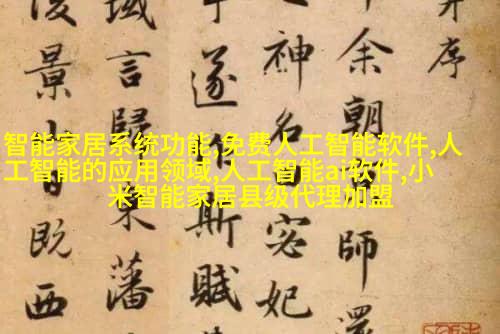 智能家居系统功能,免费人工智能软件,人
工智能的应用领域,人工智能ai软件,小
米智能家居县级代理加盟
序
余朝師還
神名宓妃
遂斯賦
域言歸藩
景既西